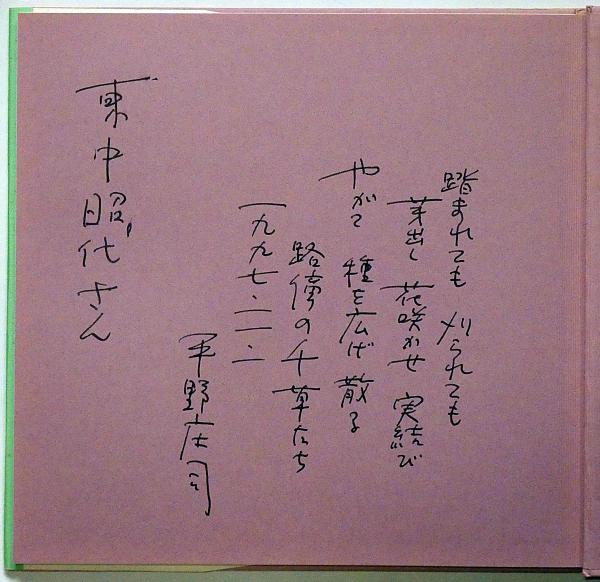 踏まれても 刈られても
芽出し 花咲かせ 実結び
やがて 種を広げ 散る
路傍の千草たち
一九九七・二一・二
平野庄司
東中昭代さん